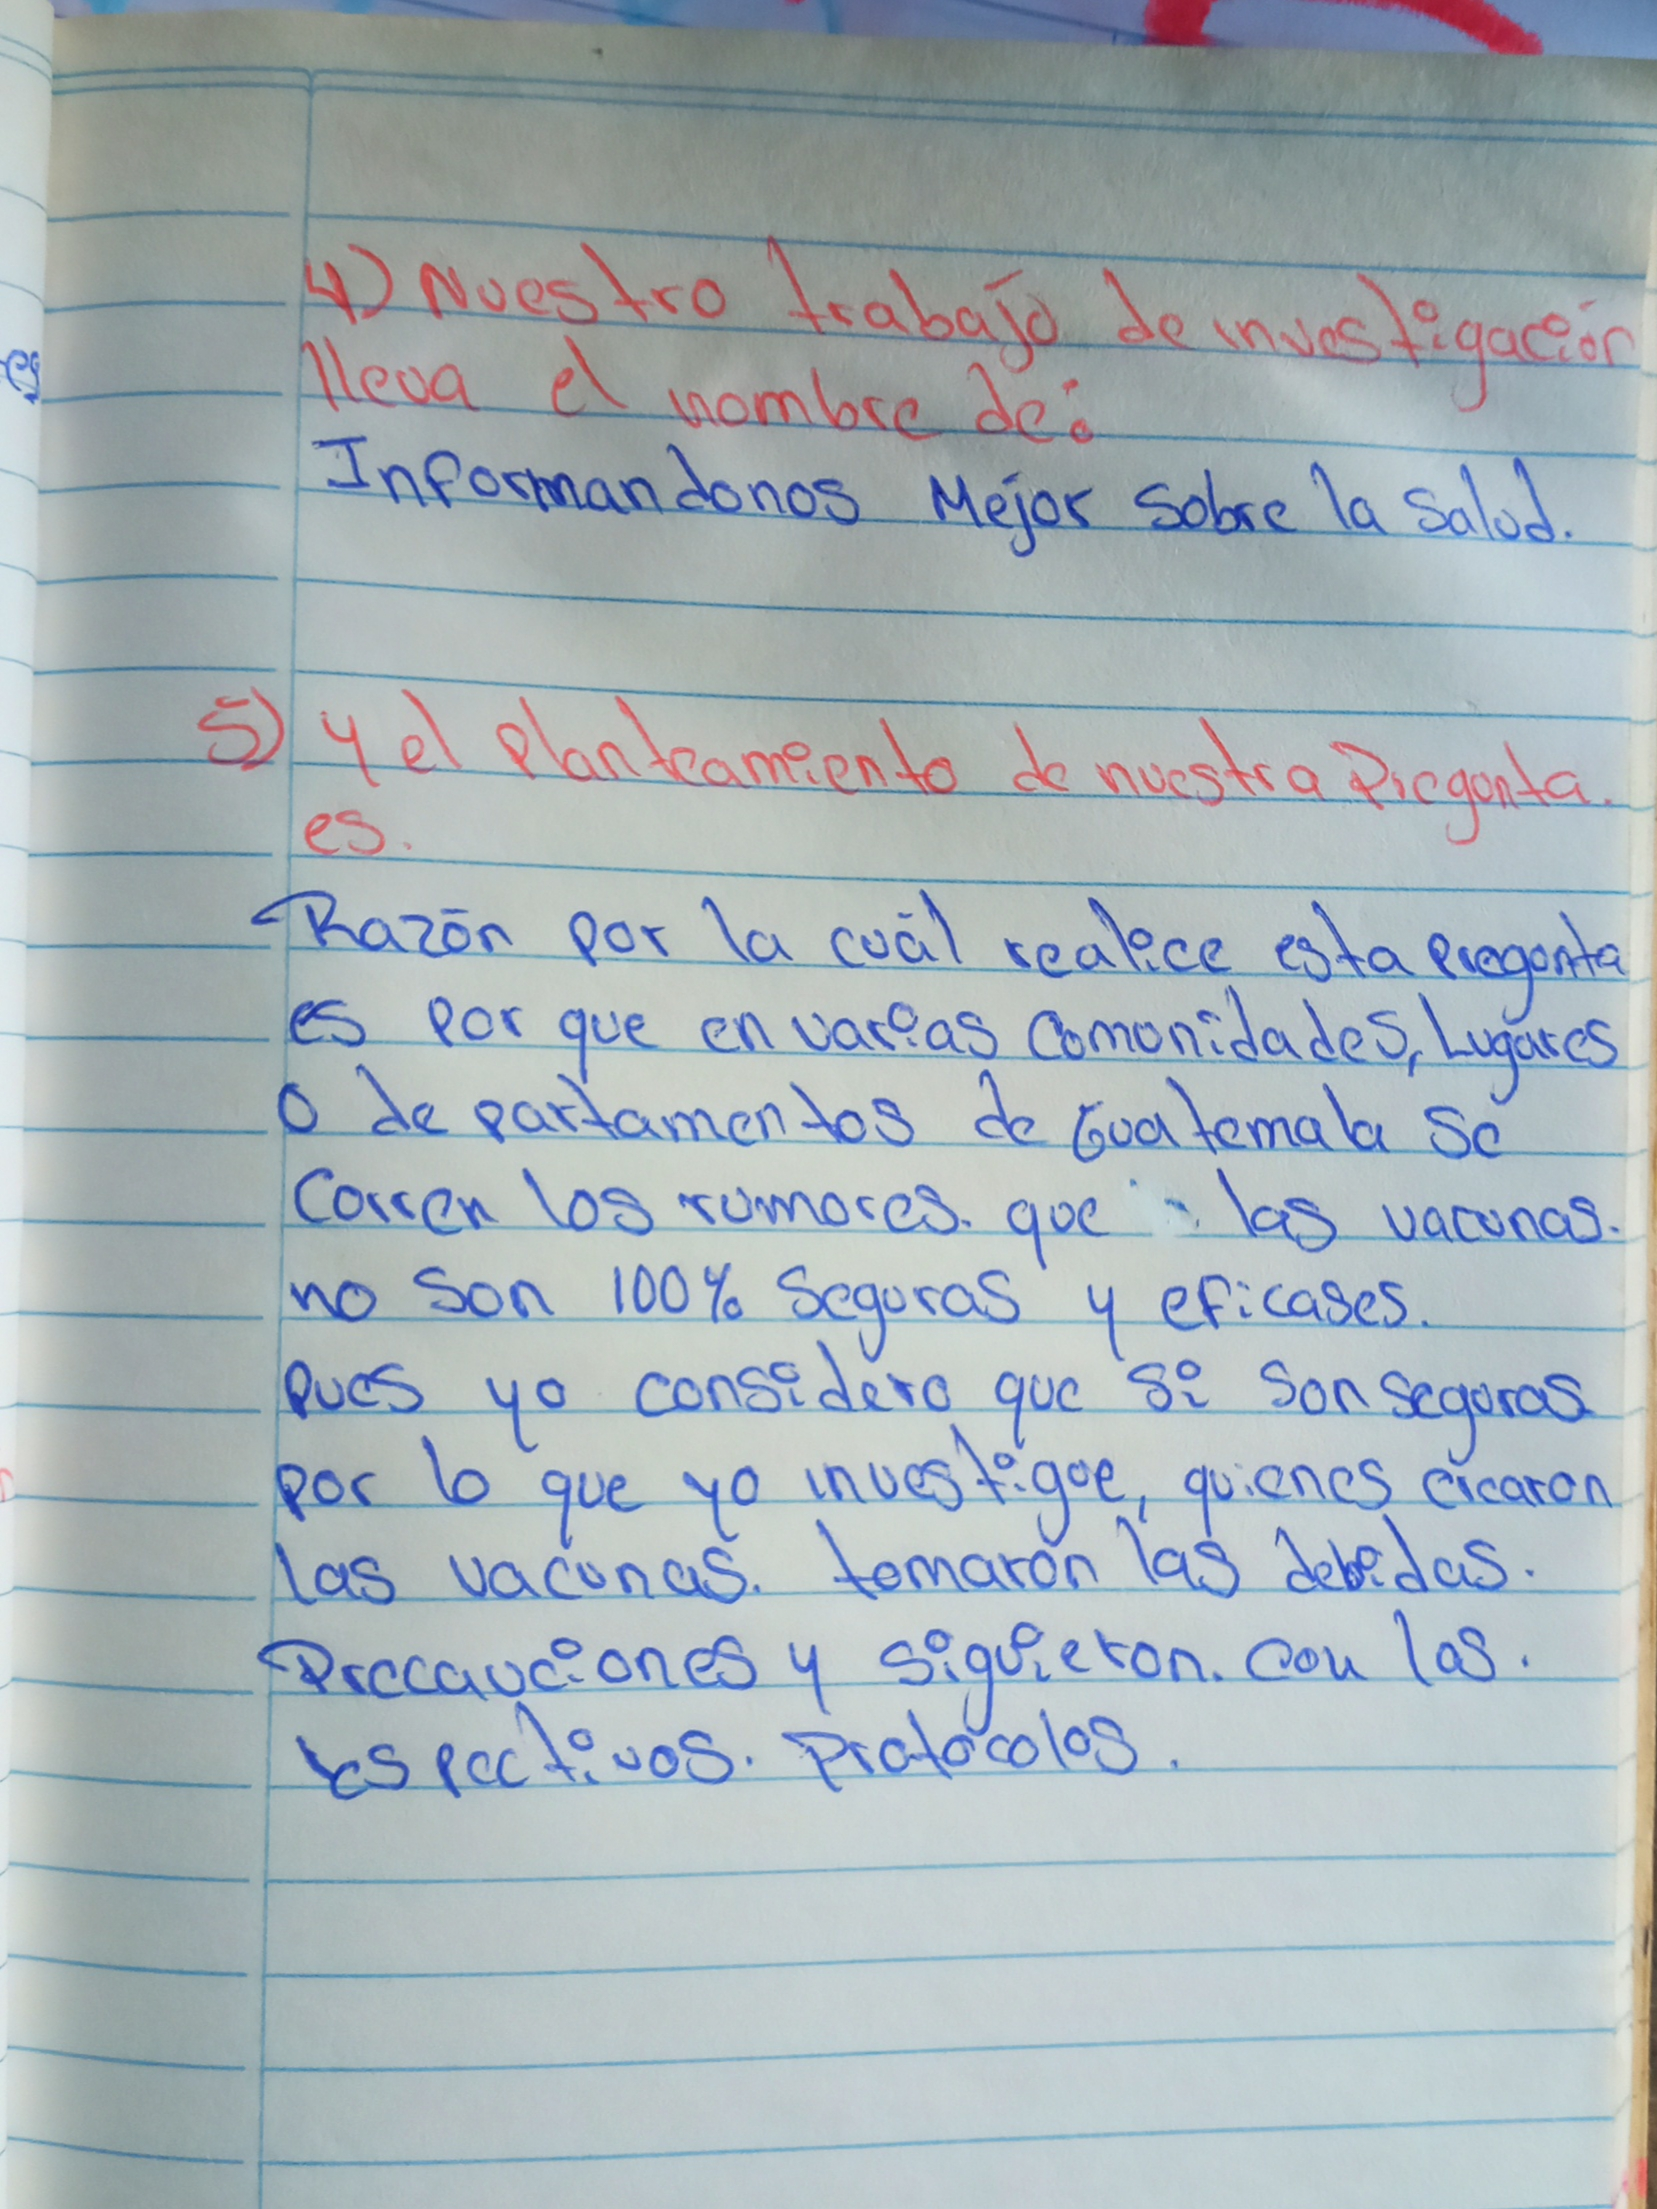 4) Nuestro trabajo de investigación
lleva el nombre de:
Informandonos Mejor Sobre la Salud.
5) y el planteamiento de nuestra Pregunta.
es.
Razón por la cuál realice esta pregunta
es por que en varias comunidades, Lugares
o departamentos de Guatemala se
corren los rumores. que las vacunas.
no son 100% seguras y eficases.
pues yo considero que si son seguras
por lo que yo investigue, quienes crearon
las vacunas. tomarón las debidas.
Precauciones y siguieron. con los.
respectivos. Protocolos.